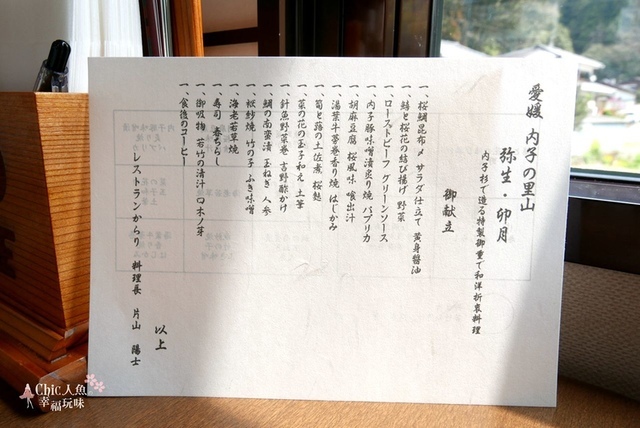 愛媛 内子の里山
弥生・卯月
内子杉で造る特製御重で和洋折衷料理
御献立
一、桜鯛昆布〆 サラダ仕立て 黄身醬油
一、鰆と桜花の結び揚げ 野菜
一、ローストビーフ グリーンソース
一、内子豚味噌漬炙り焼 パプリカ
一、胡麻豆腐 桜風味 喰出汁
一、湯葉牛蒡巻香り焼 はじかみ
一、筍と蕗の土佐煮 桜麩
一、菜の花の玉子和え 土筆
一、針魚野菜巻 吉野酢かけ
一、鯛の南蛮漬 玉ねぎ 人参
一、袱紗焼 竹の子 ふき味噌
一、海老若草焼
一、寿司 春ちらし
一、御吸物 若竹の清汁 口木ノ芽
一、食後のコーヒー
以上
レストランからり 料理長 片山 陽士
Chic人魚
幸福玩味